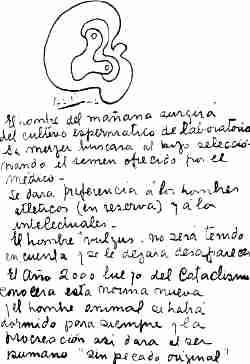 El hombre del mañana surgirá
del cultivo espermático de laboratorio
La mujer buscara al hijo seleccio-
nando el semen ofrecido por el
médico -
Se dará preferencia á los hombres
atleticos (en reserva) y á los
intelectuales. -
El hombre vulgus, no será tenido
en cuenta y se le dejara desaparecer
El Año 2000 luego del Cataclismo
conocera esta norma nueva
y el hombre animal se habrá
dormido para siempre y la
procreación asi dara el ser
humano "sin pecado original"